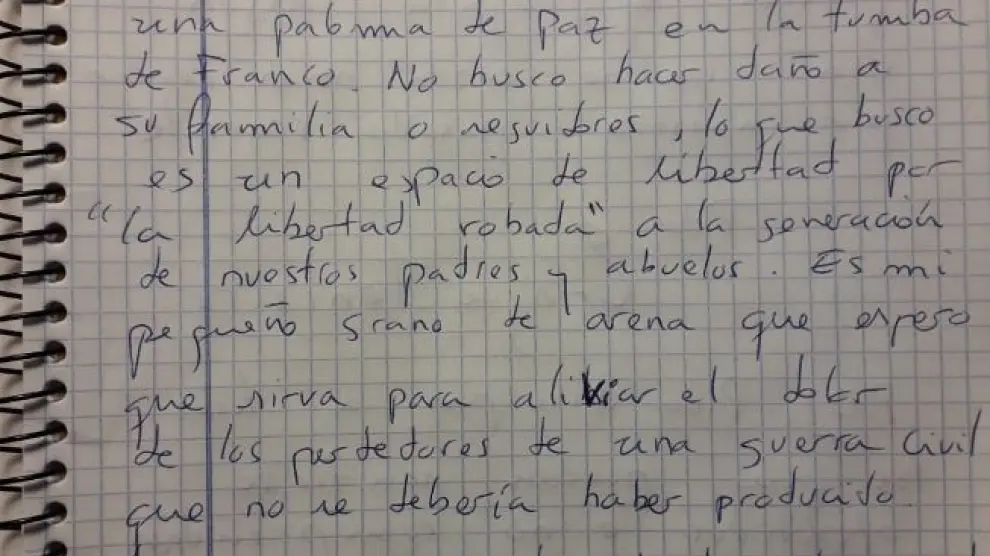 una paloma de Paz en la tumba
de Franco. No busco hacer daño a
su familia o seguidores, lo que busco
es un espacio de libertad por
"la libertad robada" a la generación
de nuestros padres y abuelos. Es mi
pequeño grano de arena que espero
que sirva para aliviar el dolor
de los perdedores de una guerra Civil
que no se debería haber producido.